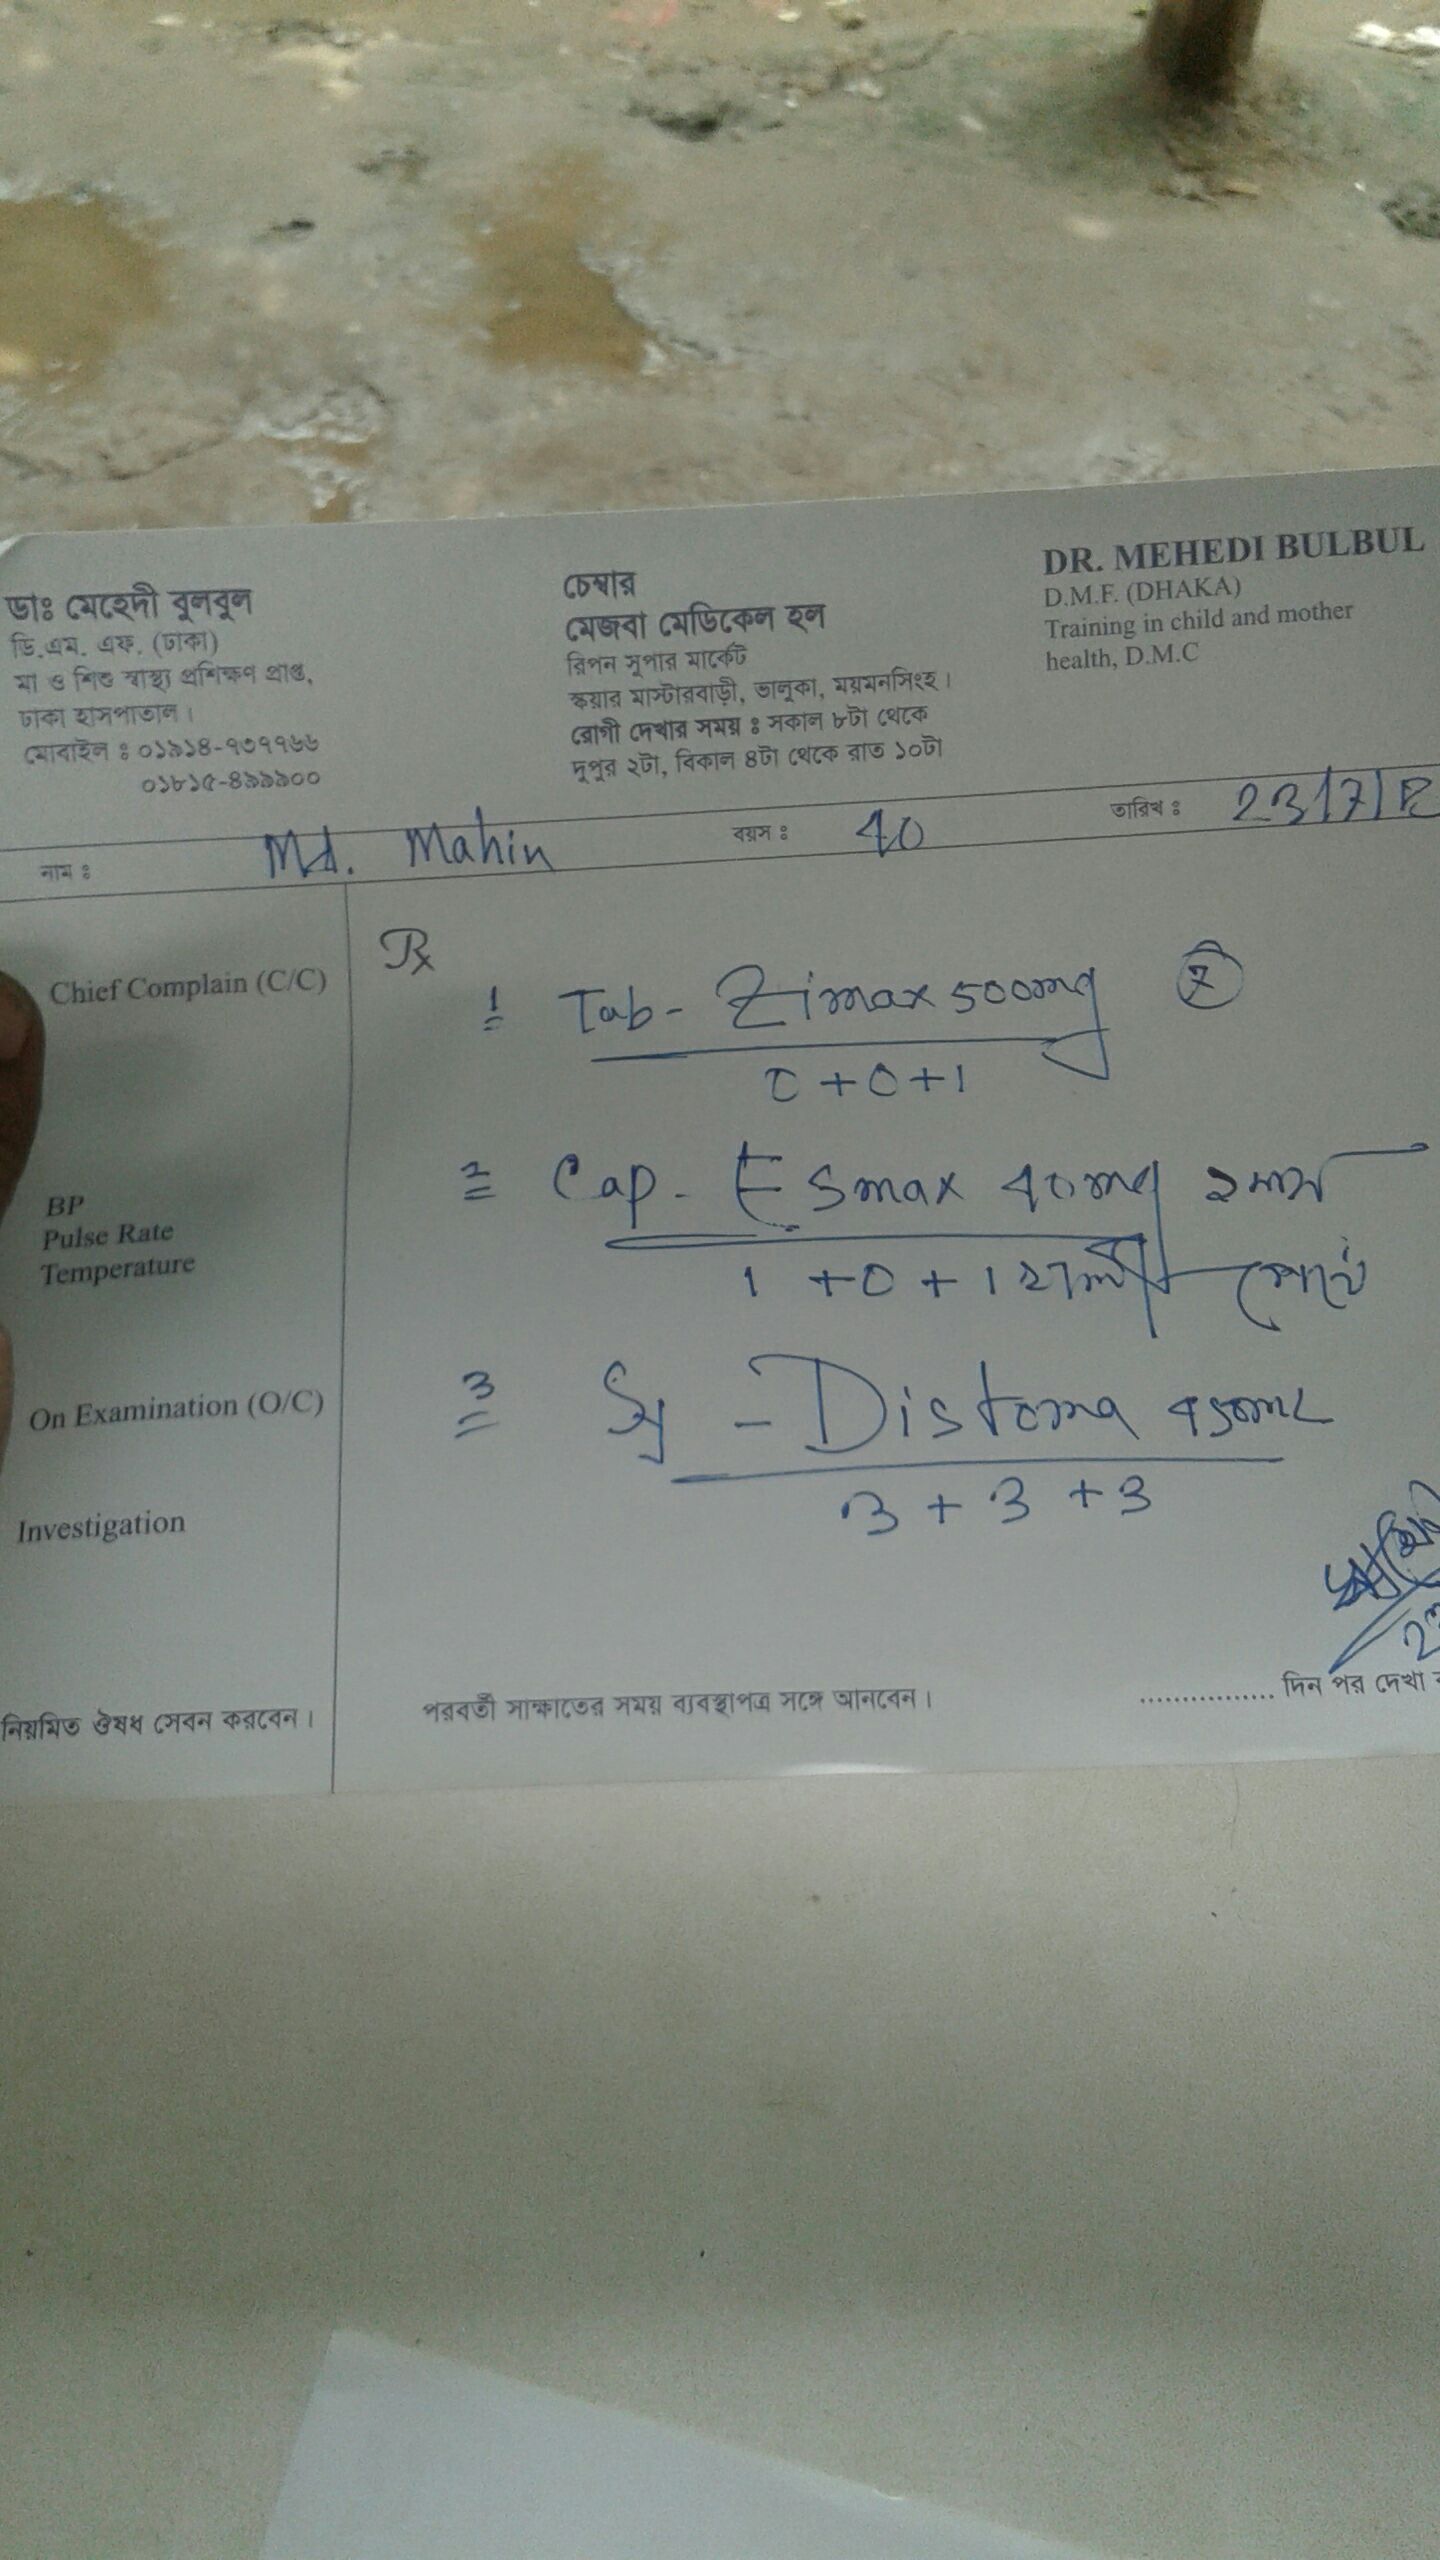 ডাঃ মেহেদী বুলবুল
ডি.এম. এফ. (ঢাকা)
মা ও শিশু স্বাস্থ্য প্রশিক্ষণ প্রাপ্ত,
ঢাকা হাসপাতাল।
মোবাইল : ০১৯১৪-৭৩৭৭৬৬
০১৮১৫-৪৯৯৯০০
চেম্বার
মেজবা মেডিকেল হল
রিপন সুপার মার্কেট
স্কয়ার মাস্টারবাড়ী, ভালুকা, ময়মনসিংহ।
রোগী দেখার সময় : সকাল ৮টা থেকে
দুপুর ২টা, বিকাল ৪টা থেকে রাত ১০টা
DR. MEHEDI BULBUL
D.M.F. (DHAKA)
Training in child and mother
health, D.M.C
নাম : Md. Mahin বয়স : 40 তারিখ : 23/7/
Chief Complain (C/C)
BP
Pulse Rate
Temperature
On Examination (O/C)
Investigation
Rx
1 Tab- Zimax 500mg 7
0+0+1
2 Cap- Esmax 40mg
1+0+1 খালি পেটে
3 Sy - Distoma 450mL
3+3+3
নিয়মিত ঔষধ সেবন করবেন।
পরবর্তী সাক্ষাতের সময় ব্যবস্থাপত্র সঙ্গে আনবেন।
................ দিন পর দেখা